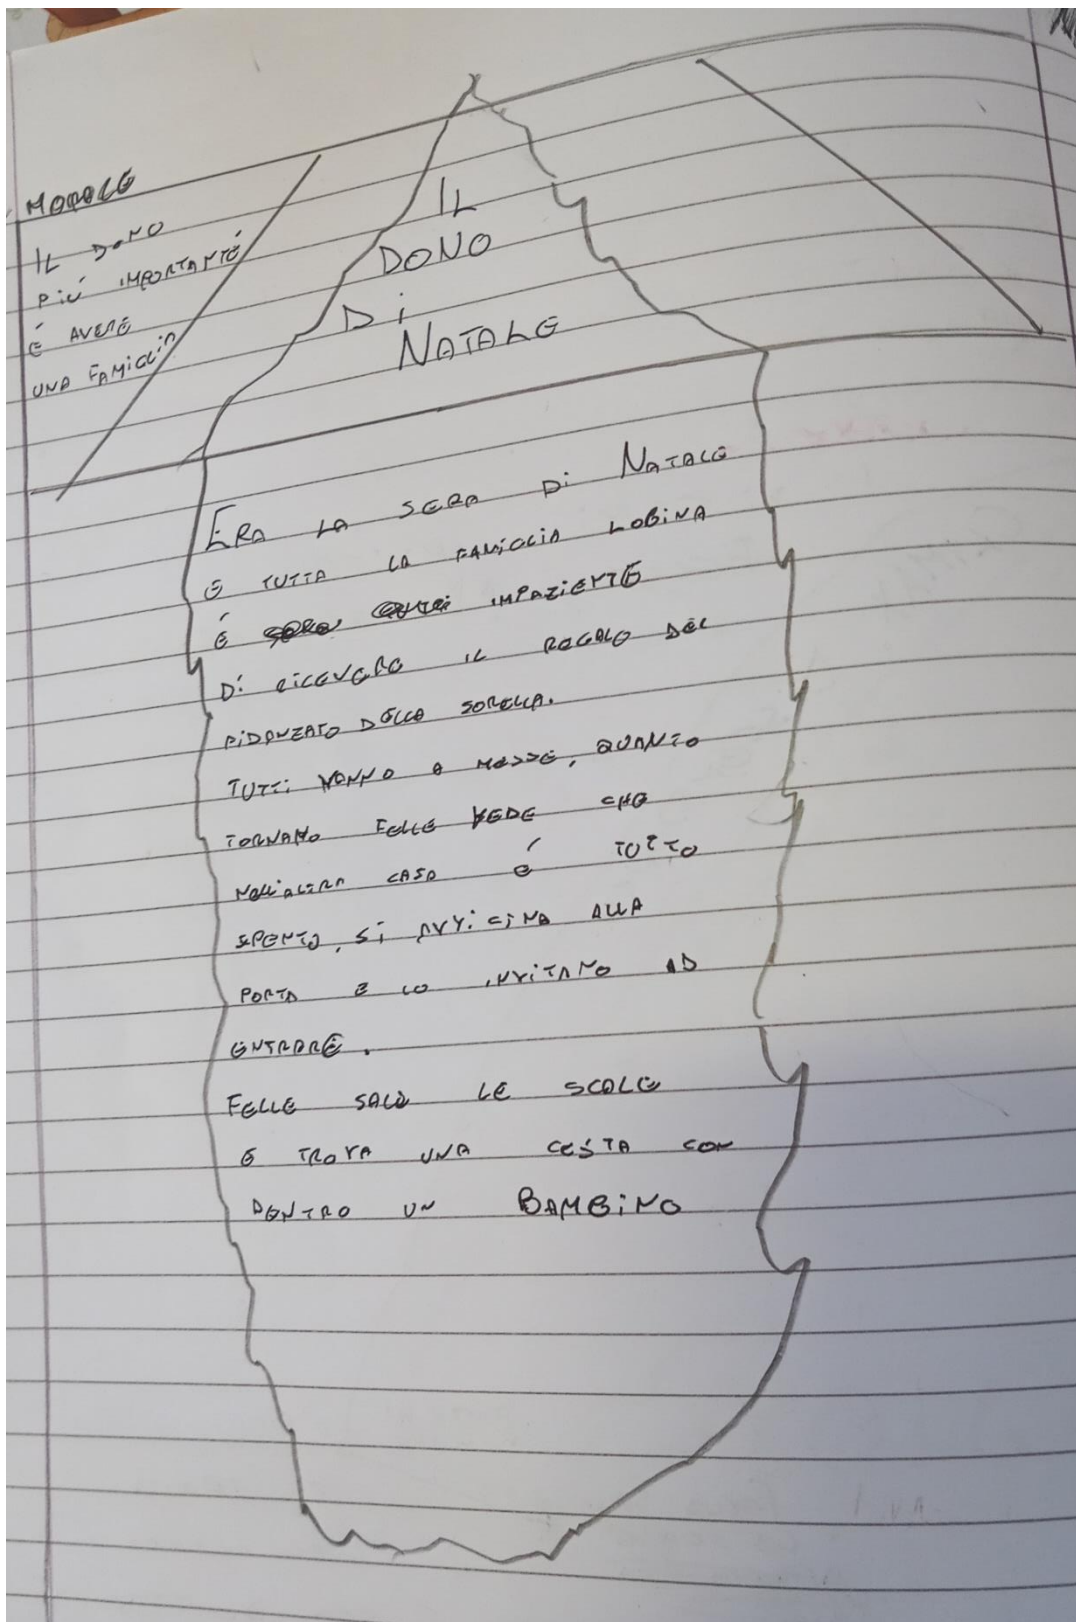 MORALE
IL DONO
PIÚ IMPORTANTÉ
É AVERE
UNA FAMIGLIA
IL
DONO
Di
NATALE
ERA LA SERA Di NATALE
E TUTTA LA FAMIGLIA LOBiNA
É IMPAZIENTE
Di RICEVERE IL REGALO DEL
FIDANZATO DELLA SORELLA.
TUTTi VANNO A MESSE, QUANTO
TORNANO FELLE VEDE CHE
NELLIALTRA CASA É TUTTO
SPENTO, Si AVViCiNA ALLA
PORTA E LO INViTANO AD
ENTRARE.
FELLE SALÌ LE SCALE
E TROVA UNA CESTA CON
DENTRO UN BAMBiNO